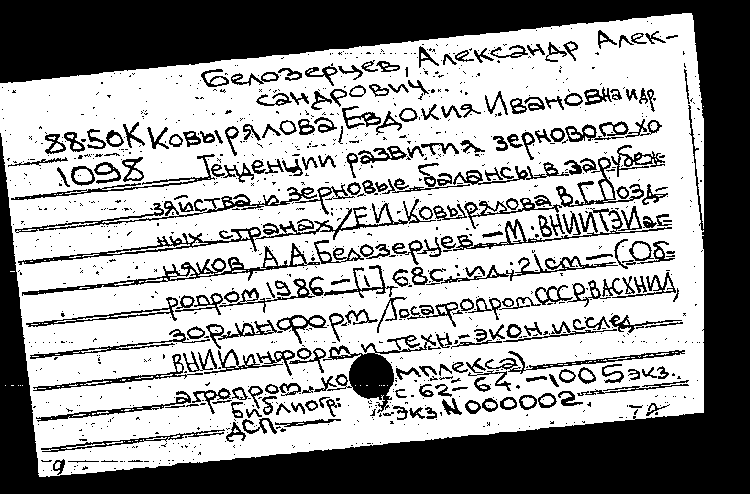 Белозерцев, Александр Алек-
сандрович...
88-50К Ковырялова, Евдокия Ивановна и др.
1098 Тенденции развития зернового хо
зяйства и зерновые балансы в зарубеж
ных странах / Е.И. Ковырялова, В.Г. Позд-
няков, А.А. Белозерцев.—М.: ВНИИТЭИаг-
ропром, 1986.—[1], 68 с.: ил.; 21 см—(Об-
зор. информ / Госагропром СССР, ВАСХНИЛ,
ВНИИ информ и техн.-экон. исслед.
агропром. комплекса)
Библиогр: с. 62-64. —1005 экз.
ДСП.- Экз. N 000002.
7А
9